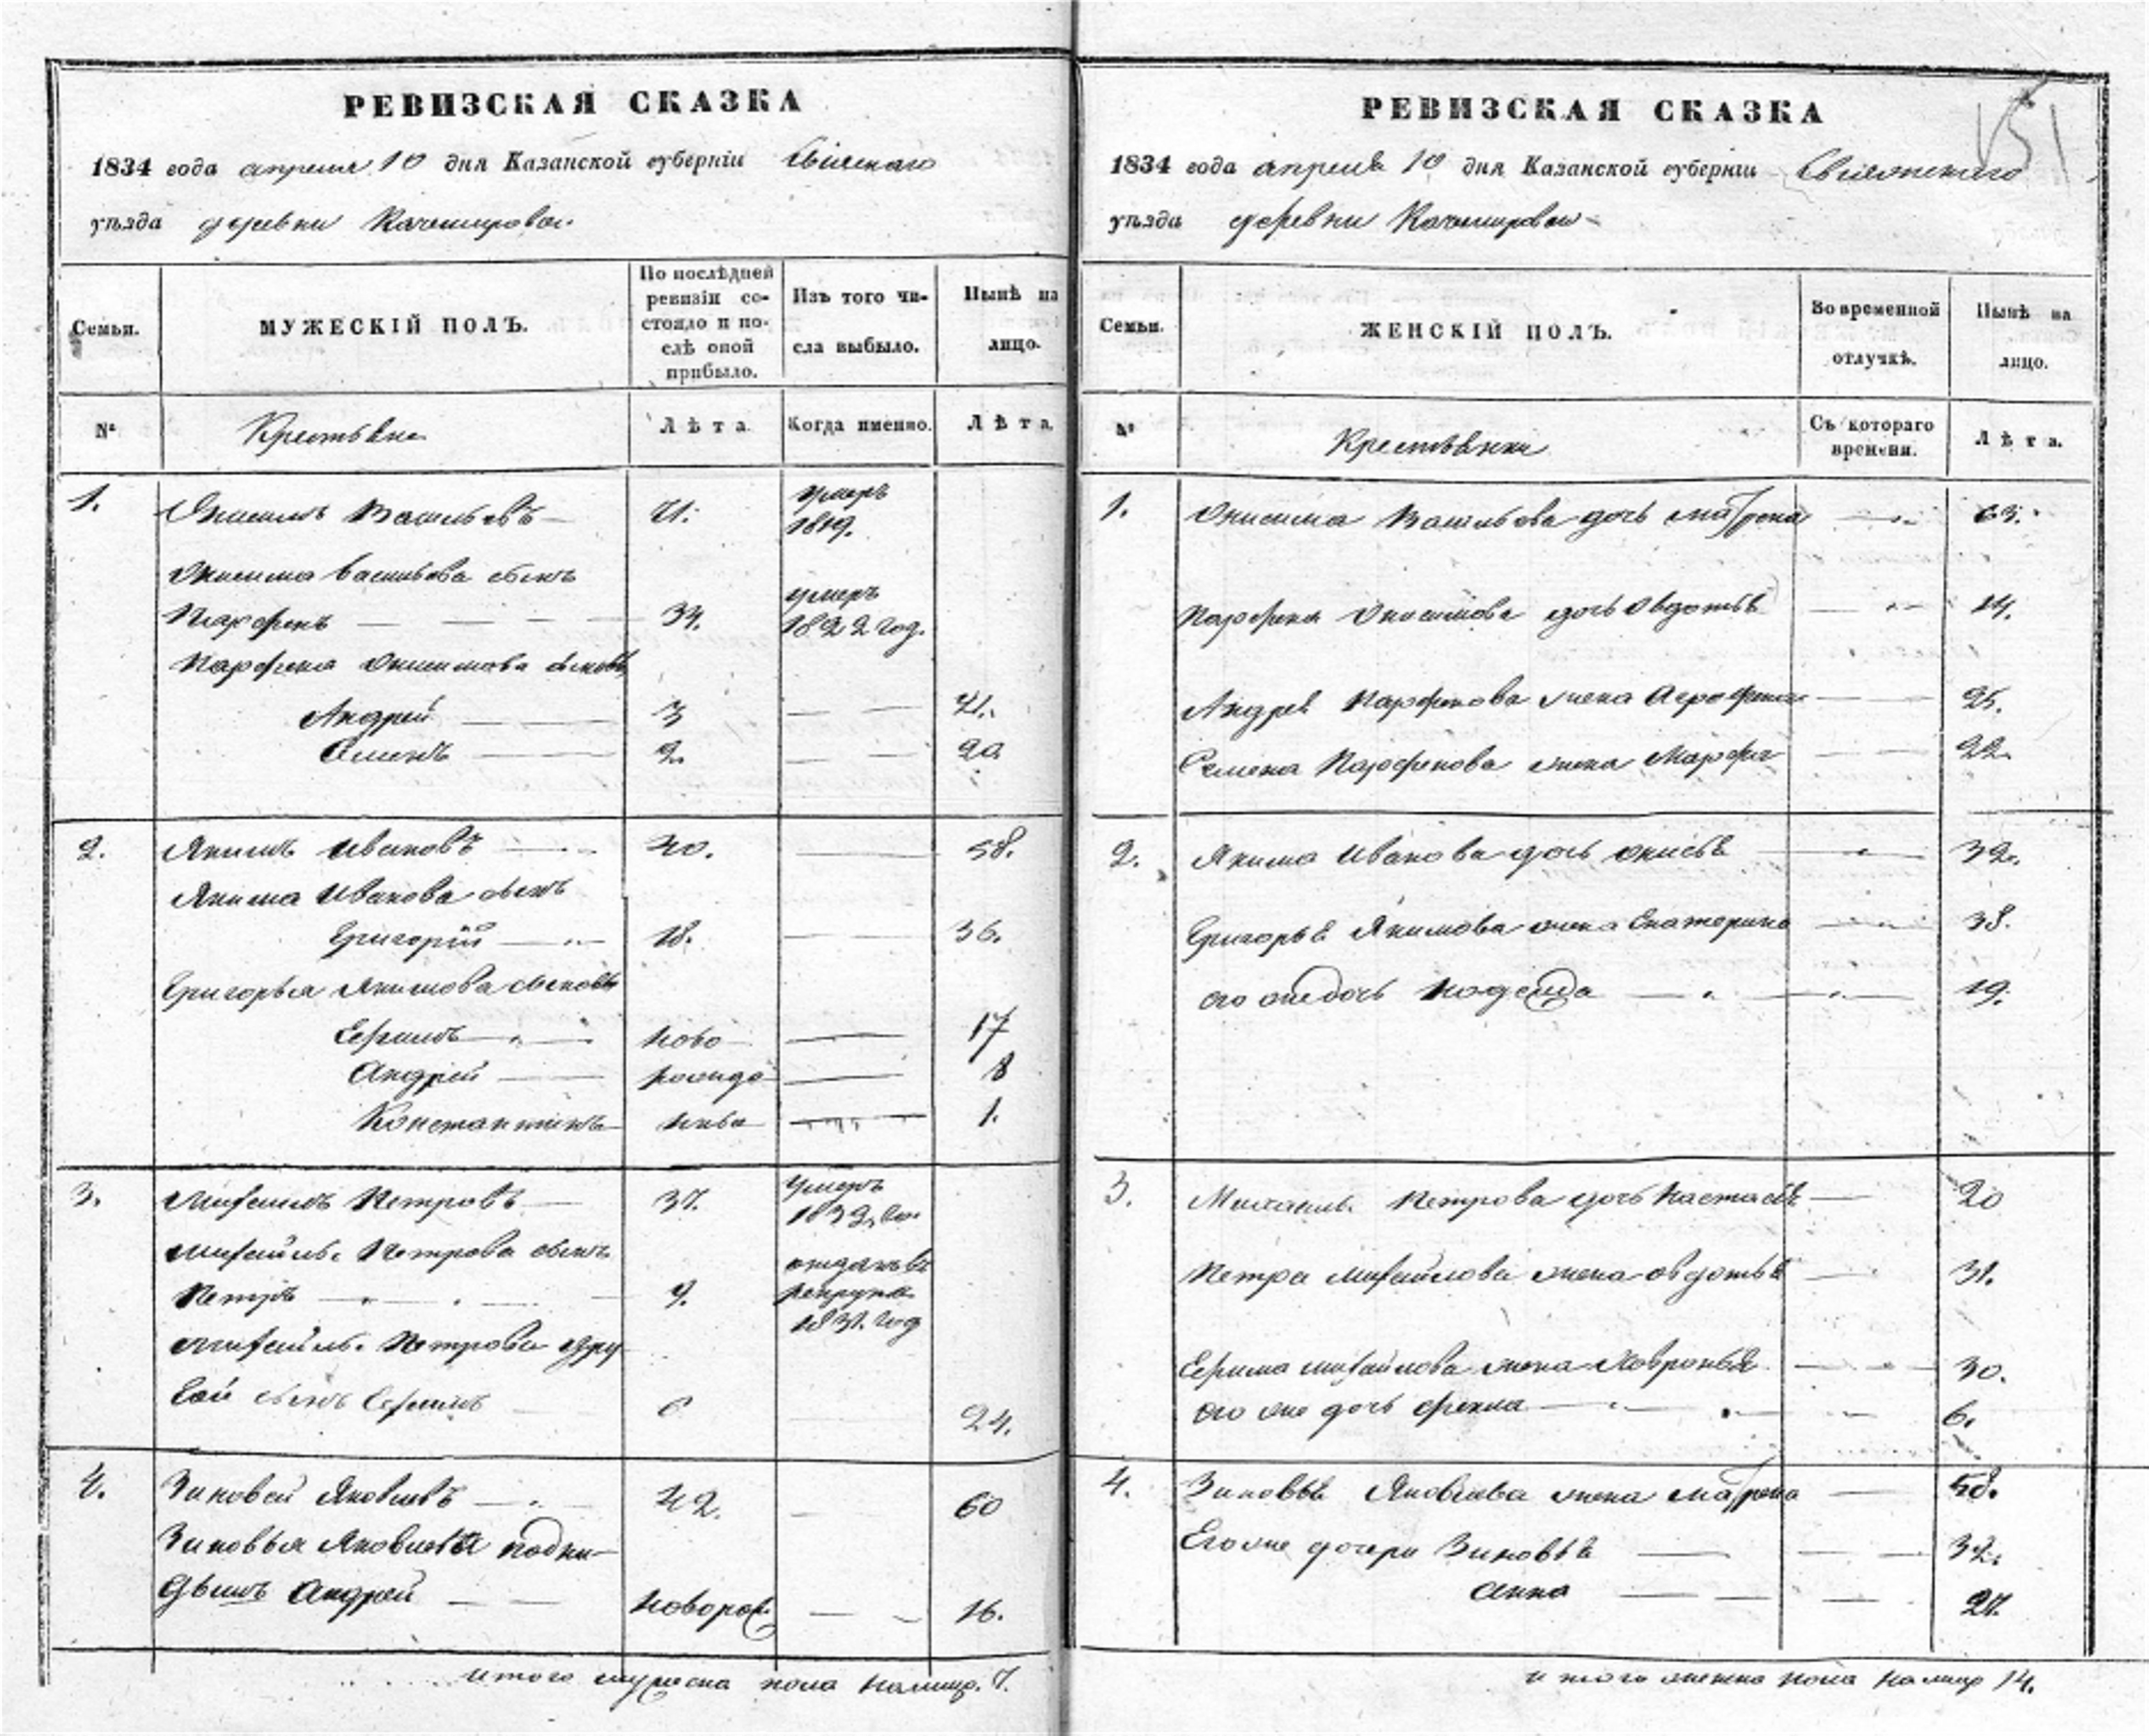 РЕВИЗСКАЯ СКАЗКА
1834 года апреля 10 дня Казанской губерніи Свіяжскаго
уѣзда деревни
Семьи.
МУЖЕСКІЙ ПОЛЪ.
По послѣдней ревизіи состояло и послѣ оной прибыло.
Изъ того числа выбыло.
Нынѣ на лицо.
№
Крестьяне
Лѣта.
Когда именно.
Лѣта.
1. Онисимъ Васильевъ 71. умеръ 1819.
Онисима Васильева сынъ
Парфенъ 34. умеръ 1822 год.
Парфена Онисимова сыновья
Андрей 3 21.
Семенъ 2. 20.
2. Якимъ Ивановъ 40. 58.
Якима Иванова сынъ
Григорій 18. 36.
Григорья Якимова сыновья
Ефимъ ново 17
Андрей рожде 8
Константинъ 1.
3. Михаилъ Петровъ 37. умеръ
Михайлы Петрова сынъ отданъ въ
Петръ 9. рекруты 1831. год
Михайлы Петрова дру
гой сынъ Ефимъ 6 24.
4. Зиновей Яковлевъ 42. 60
Зиновья Яковлева подки
дышъ Андрей новорож. 16.
итого мужеска пола налицо. 7.
РЕВИЗСКАЯ СКАЗКА
151
1834 года апреля 10 дня Казанской губерніи Свіяжскаго
уѣзда деревни
Семьи.
ЖЕНСКІЙ ПОЛЪ.
Во временной отлучкѣ.
Нынѣ на лицо.
№
Крестьянки
Съ котораго времени.
Лѣта.
1. Онисима Васильева дочь Матрена 63.
Парфена Онисимова дочь Овдотья 14.
Андрея Парфенова жена Агрофена 25.
Семена Парфенова жена Марфа 22.
2. Якима Иванова дочь 32.
Григорья Якимова жена Екатерина 38.
его же дочь Надежда 19.
3. Михаилы Петрова дочь Настасья 20
Петра Михайлова жена Овдотья 31.
Ефима Михайлова жена Хавронья 30.
его же дочь Фекла 6.
4. Зиновья Яковлева жена Матрена 58.
Его же дочери Зиновья 32.
Анна 27.
итого женска пола налицо 14.